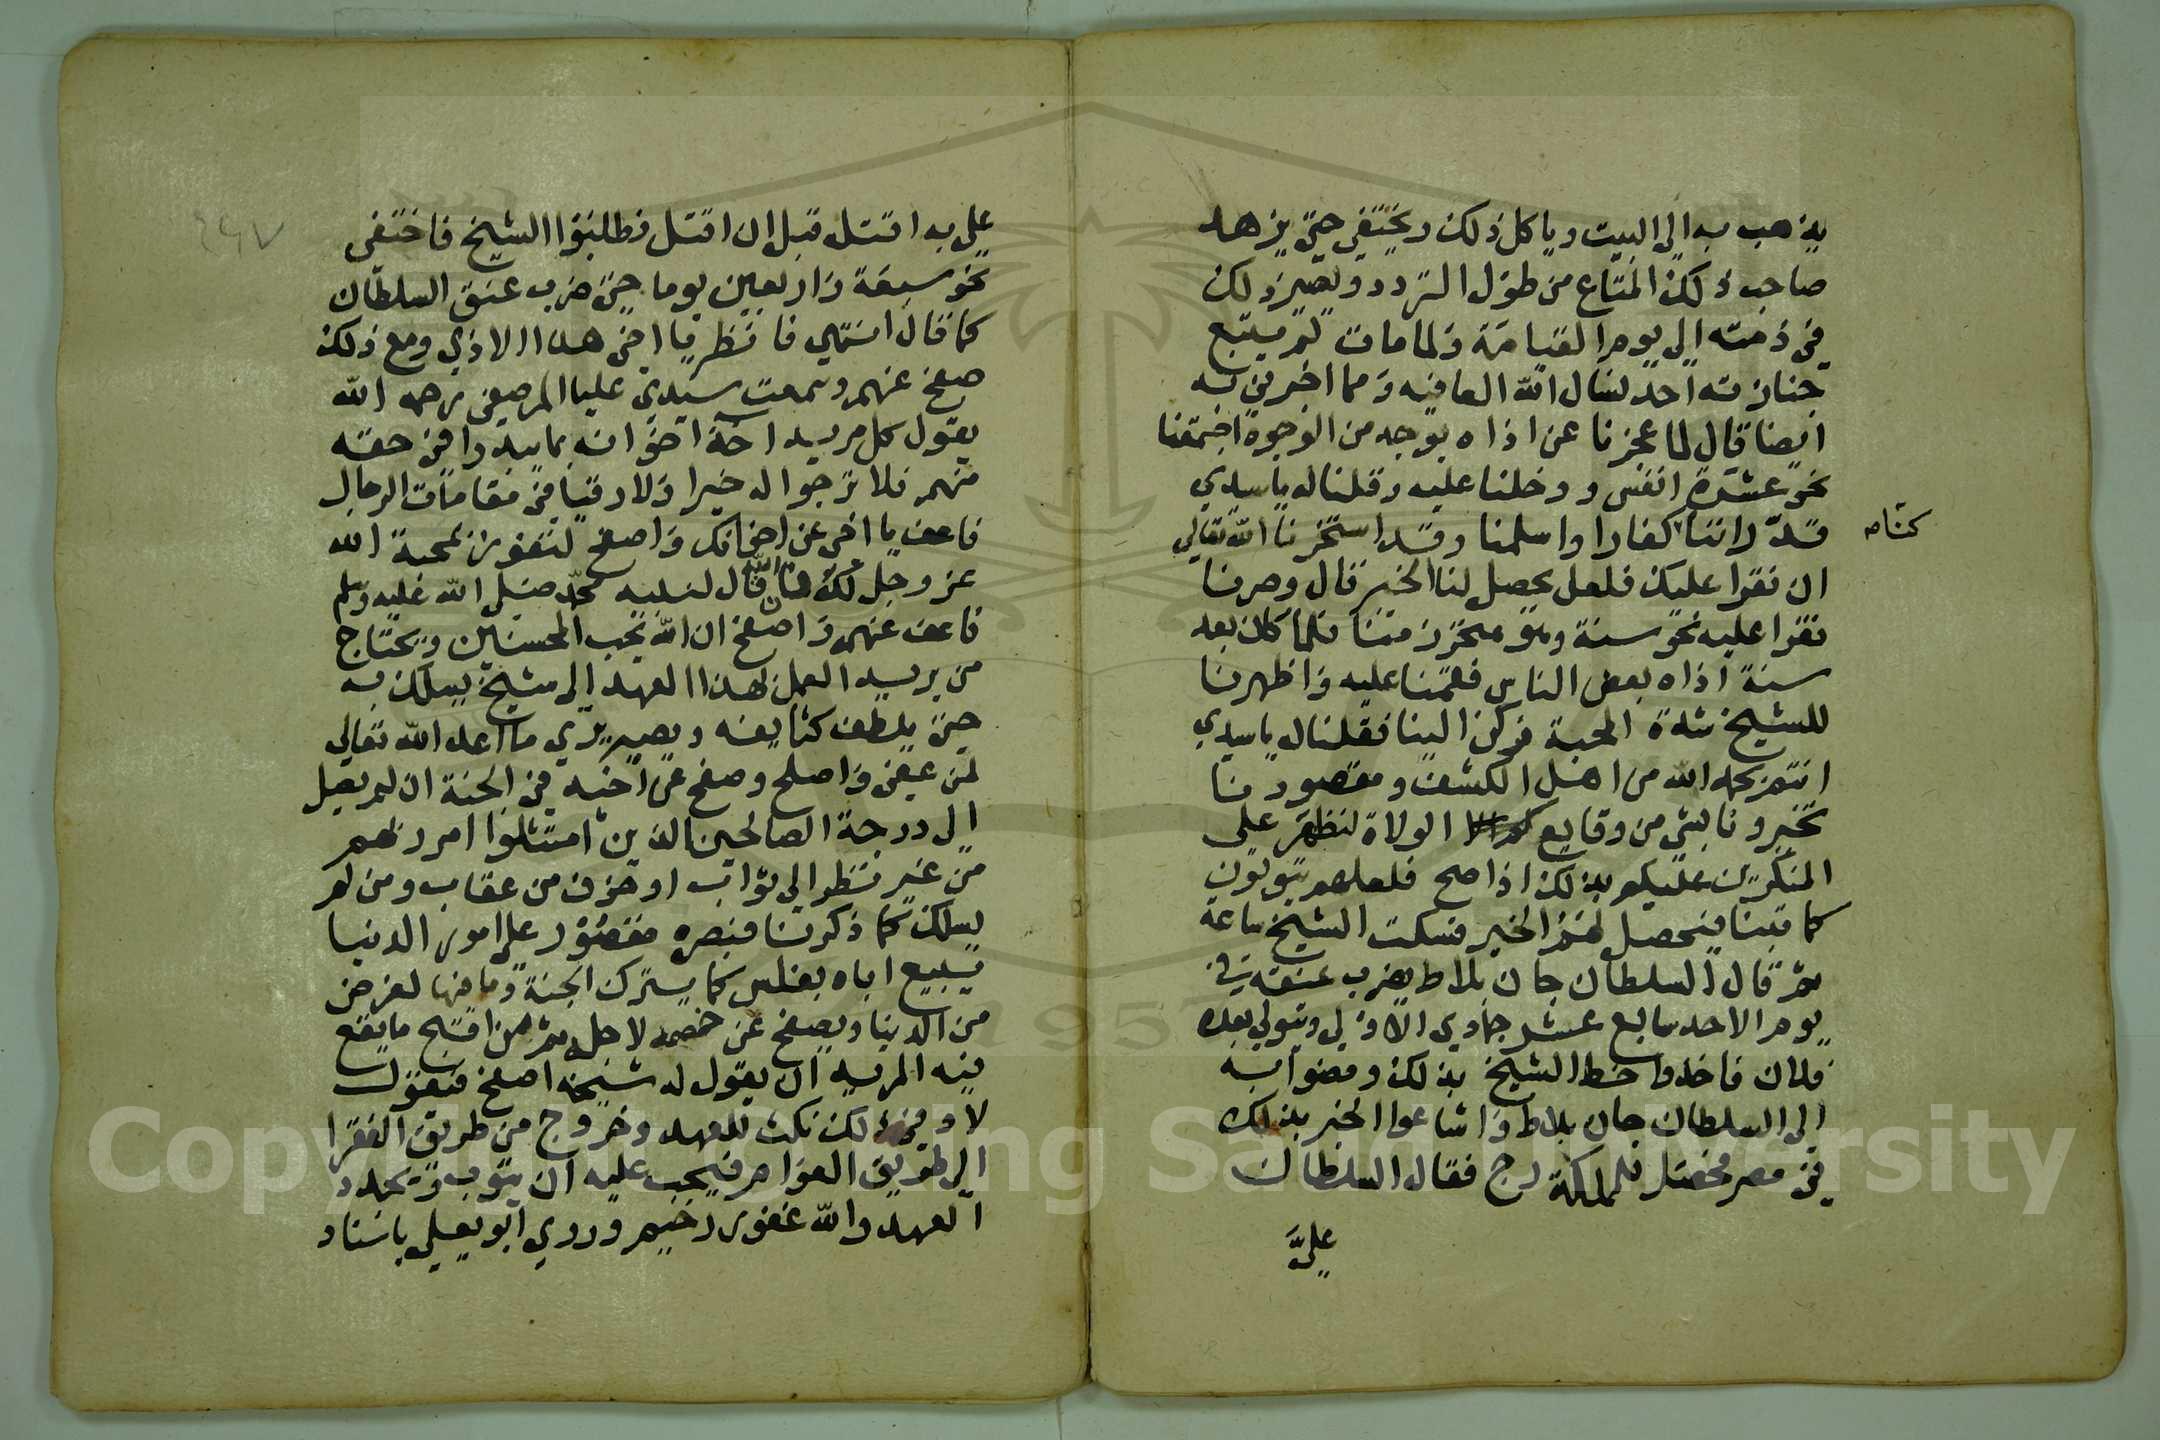 يذهب به الي البيت وياكل ذلك ويختفي حتي يزهد
صاحب ذلك المتاع من طول التردد ويصير ذلك
في ذمته الي يوم القيامة ولما مات لم يتبع
جنازته احد نسال الله العافيه ومما اخبرني به
ايضا قال لما عجزنا عن اذاه بوجه من الوجوه اجتمعنا
نحو عشرة انفس ودخلنا عليه وقلنا له يا سيدي
قدّ راننا كفارا واسلمنا وقد استخرنا الله تعالي
كنا صـ
ان نقرا عليك فلعل يحصل لنا الخير قال وصرنا
نقرا عليه نحو سنة وهو محترز منا فلما كان بعد
سنة اذاه بعض الناس فقمنا عليه واظهرنا
للشيخ شدة المحبة فركن الينا فقلنا له يا سيدي
انتم بحمد الله من اهل الكشف ومقصودنا
تخبرونا بشي من وقايع الولاة لنظهر علي
المنكرين عليكم بذلك اذا صح فلعلهم يتوبون
كما تبنا فيحصل لهم الخير فسكت الشيخ ساعة
ثم قال السلطان جان بلاط يضرب عنقه في
يوم الاحد سابع عشر جمادي الاولي ويتولي بعده
فلان فاخذوا خط الشيخ بذلك ومضوا به
الي السلطان جان بلاط واشاعوا الخبر بذلك
في مصر فحصل للمملكة رج فقال السلطان
عليَّ
٢٤٧
علي به اقتله قبل ان اقتل فطلبوا الشيخ فاختفي
نحو سبعة واربعين يوما حتي ضرب عنق السلطان
كما قال انتهي فانظر يا اخي هذا الاذي ومع ذلك
صفح عنهم وسمعت سيدي عليا المرصفي رحمه الله
يقول كل مريد اخذ اخوانه بما يبدوا في حقه
منهم فلا ترجوا له خيرا ولا رقيا في مقامات الرجال
فاعف يا اخي عن اخوانك واصفح لتفوز بمحبة الله
عز وجل لك فان الله قال لنبيه محمد صلي الله عليه وسلم
فاعف عنهم واصفح ان الله يحب المحسنين ويحتاج
من يريد العمل لهذا العهد الي شيخ يسلك به
حتي يلطف كثايفه ويصير يري ما اعد الله تعالي
لمن عفي واصلح وصفح عن اخيه في الجنة ان لم يصل
الي درجة الصالحين الذين امتثلوا امر ربهم
من غير نظر الي ثواب او خوف من عقاب ومن لم
يسلك كما ذكرنا فبصره مقصور علي امور الدنيا
يبيع اباه بفلس كما يترك الجنة وما فيها لغرض
من الدنيا ويصفح عن خصمه لاجله ثم من اقبح ما يقع
فيه المريد ان يقول له شيخه اصفح فيقول
لا وفي ذلك نكث للعهد وخروج من طريق الفقرا
الي طريق العوام فيجب عليه ان يتوب ويجدد
العهد والله غفور رحيم وروي ابو يعلي باسناد